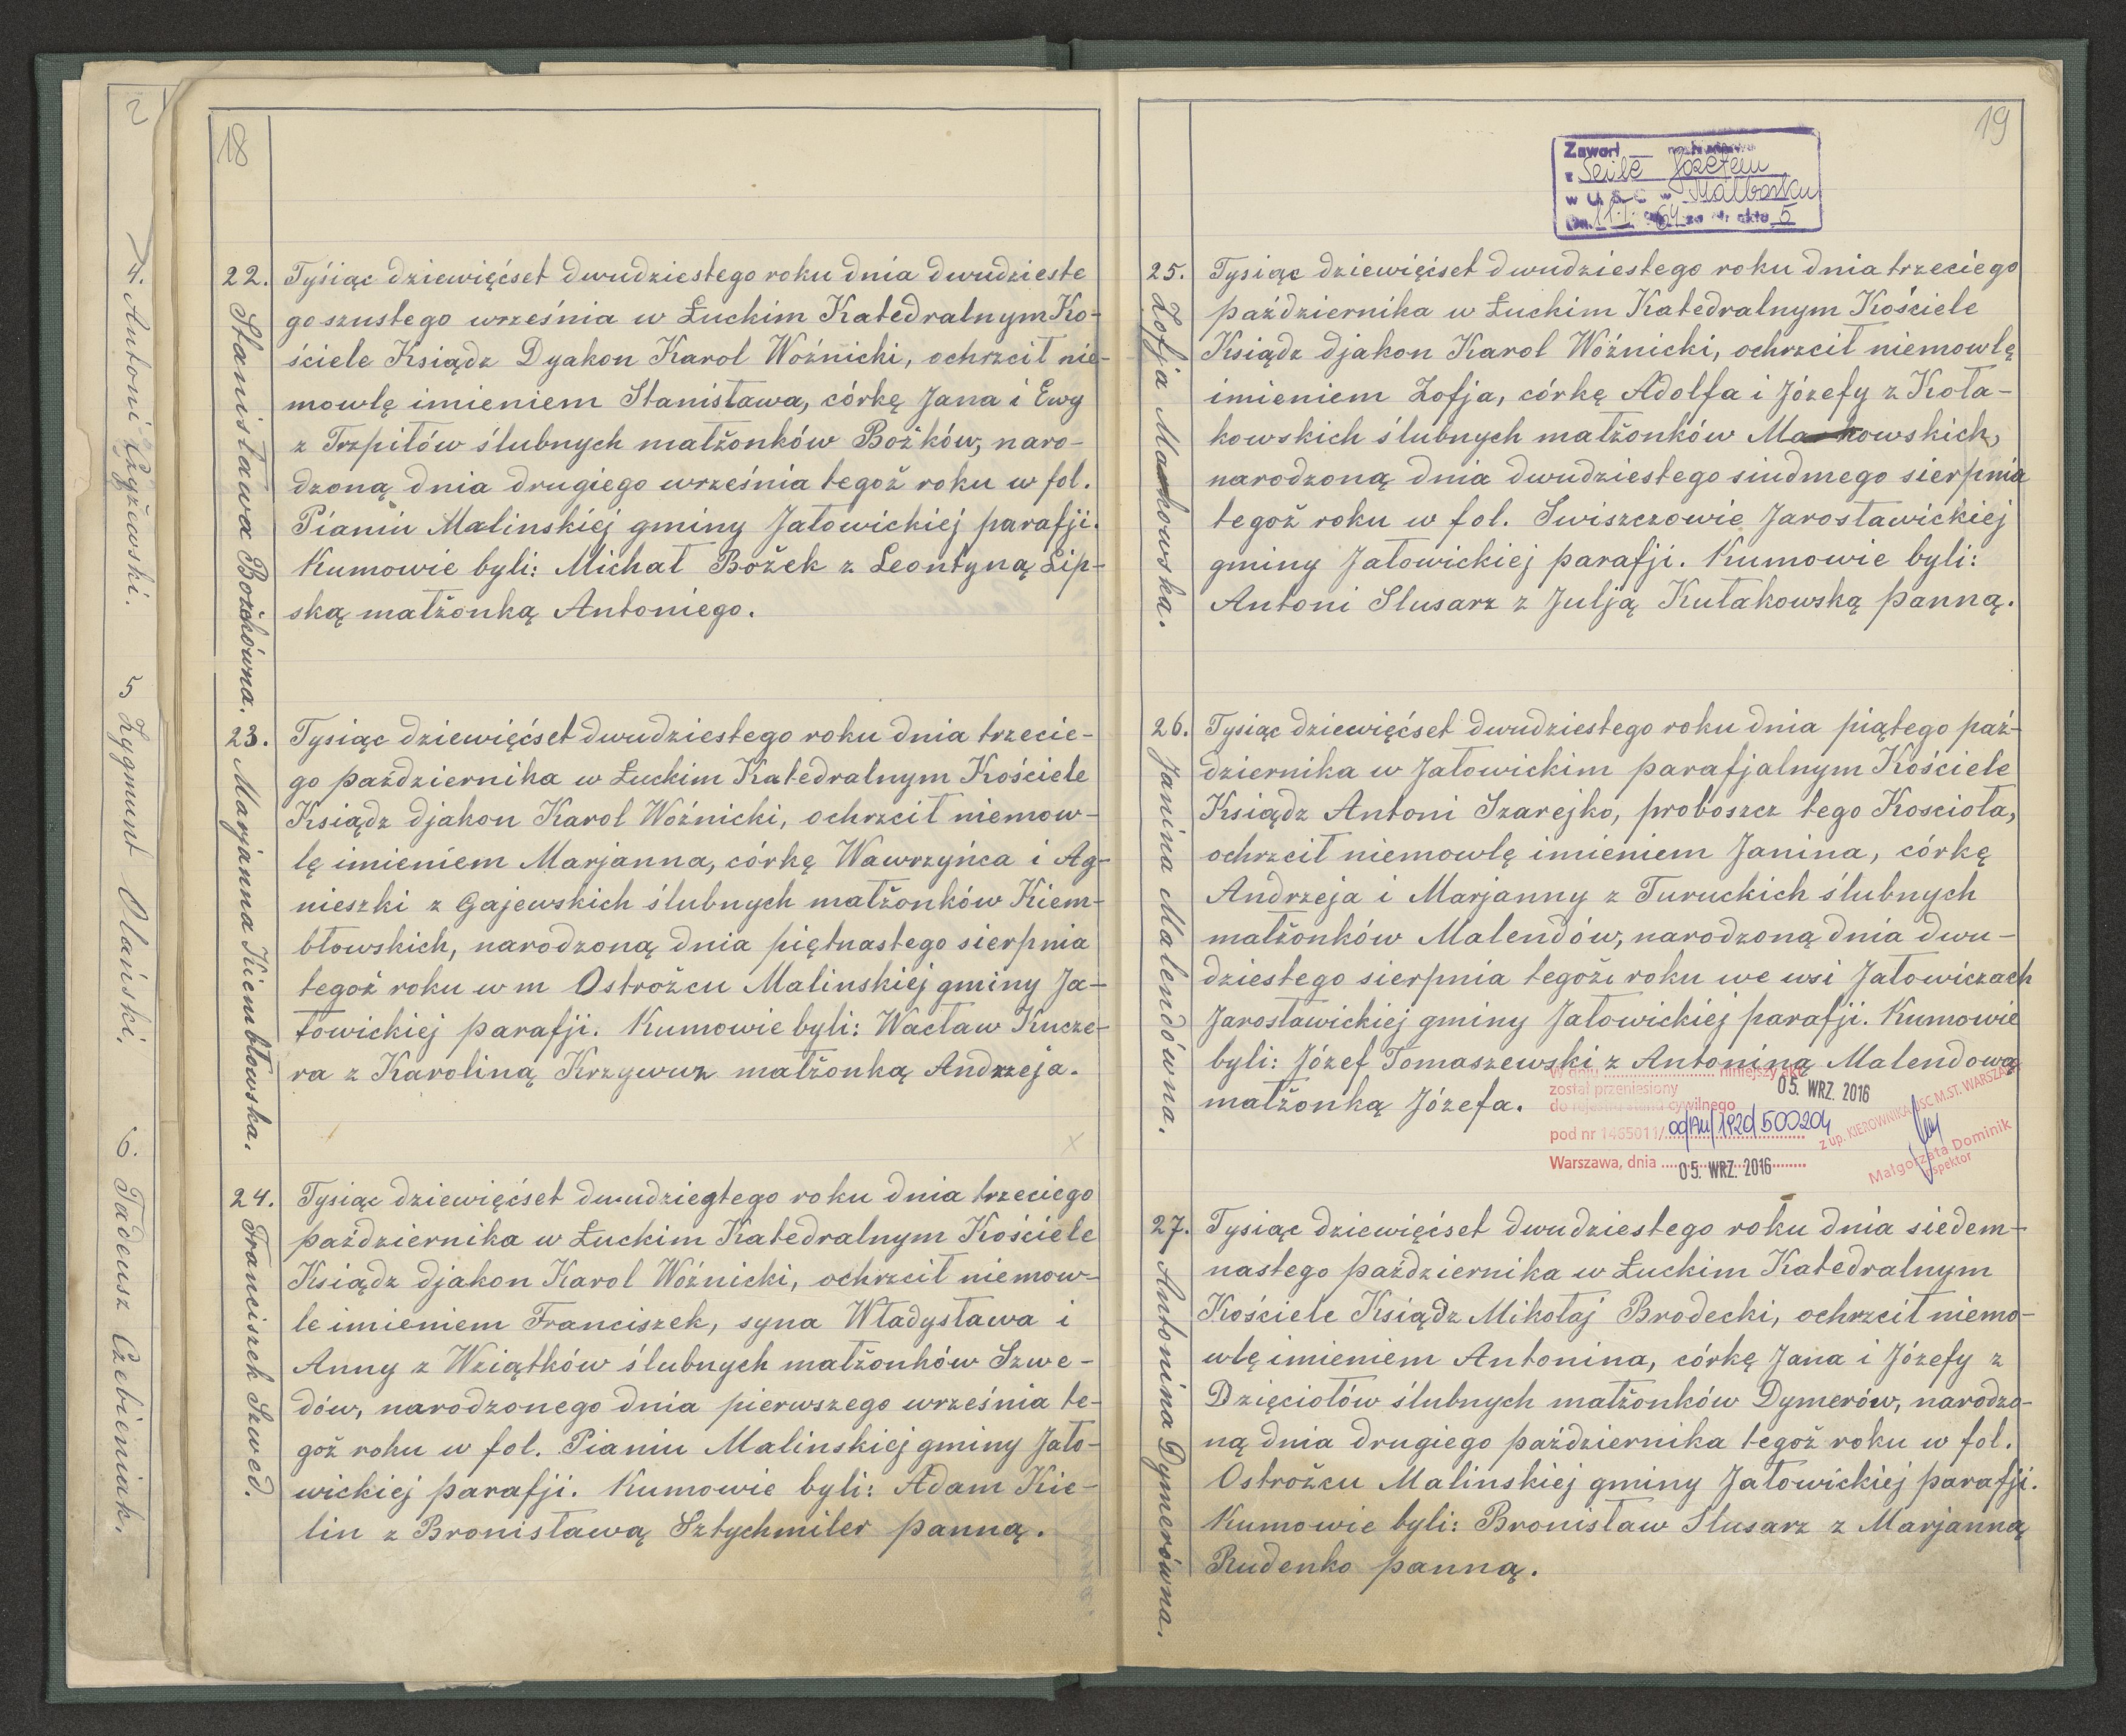 2
4. Antoni Czyżewski.
5 Zygmunt Olański.
6. Tadeusz Czebieniak.
18
22.
Stanisława Bożkówna.
Tyśiąc dziewięćset dwudziestego roku dnia dwudzieste
go szustego września w Łuckim Katedralnym Ko-
ściele Ksiądz Dyakon Karol Woźnicki, ochrzcił nie-
mowlę imieniem Stanisława, córkę Jana i Ewy
z Trzpiłów ślubnych małżonków Bożków, naro-
dzoną dnia drugiego września tegoż roku w fol.
Pianiu Malinskiej gminy Jałowickiej parafji.
Kumowie byli: Michał Bożek z Leontyną Lip-
ską małżonką Antoniego.
23.
Marjanna Kiembłowska.
Tysiąc dziewięćset dwudziestego roku dnia trzecie-
go października w Łuckim Katedralnym Kościele
Ksiądz djakon Karol Woźnicki, ochrzcił niemow-
lę imieniem Marjanna, córkę Wawrzyńca i Ag-
nieszki z Gajewskich ślubnych małżonków Kiem-
błowskich, narodzoną dnia piętnastego sierpnia
tegoż roku w m Ostrożcu Malinskiej gminy Ja-
łowickiej parafji. Kumowie byli: Wacław Kucze-
ra z Karoliną Krzywuz małżonką Andrzeja.
24.
Franciszek Szwed.
Tysiąc dziewięćset dwudziestego roku dnia trzeciego
października w Łuckim Katedralnym Kościele
Ksiądz djakon Karol Woźnicki, ochrzcił niemow-
le imieniem Franciszek, syna Władysława i
Anny z Wziątków ślubnych małżonków Szwe-
dów, narodzonego dnia pierwszego września te-
goż roku w fol. Pianiu Malinskiej gminy Jało-
wickiej parafji. Kumowie byli: Adam Kie-
lin z Bronisławą Sztychmiler panną.
19
Zawarł
z Seibe Józefem
w U. S. C w Malborku
Dn. 11.I. 64 za Nr aktu 5
25.
Zofja Markowska.
Tysiąc dziewięćset dwudziestego roku dnia trzeciego
października w Łuckim Katedralnym Kościele
Ksiądz djakon Karol Woźnicki, ochrzcił niemowlę
imieniem Zofja, córkę Adolfa i Józefy z Koła-
kowskich ślubnych małżonków Markowskich,
narodzoną dnia dwudziestego siudmego sierpnia
tegoż roku w fol. Swiszczowie Jarosławickiej
gminy Jałowickiej parafji. Kumowie byli:
Antoni Slusarz z Julją Kułakowską panną.
26.
Janina Malendówna.
Tysiąc dziewięćset dwudziestego roku dnia piątego paź-
dziernika w Jałowickim parafjalnym Kościele
Ksiądz Antoni Szarejko, proboszcz tego Koscioła,
ochrzcił niemowlę imieniem Janina, córkę
Andrzeja i Marjanny z Turuckich ślubnych
małżonków Malendów, narodzoną dnia dwu-
dziestego sierpnia tegoż roku we wsi Jałowiczach
Jarosławickiej gminy Jałowickiej parafji. Kumowie
byli: Józef Tomaszewski z Antoniną Malendową
małżonką Józefa.
W dniu 05. WRZ. 2016 niniejszy akt
został przeniesiony
do rejestru stanu cywilnego
pod nr 1465011/
Warszawa, dnia 05. WRZ. 2016
z up. KIEROWNIKA USC M.ST. WARSZAWY
Małgorzata Dominik
inspektor
27.
Antonina Dymerówna.
Tysiąc dziewięćset dwudziestego roku dnia siedem-
nastego października w Łuckim Katedralnym
Kościele Ksiądz Mikołaj Brodecki, ochrzcił niemo-
wlę imieniem Antonina, córkę Jana i Józefy z
Dzięciołów ślubnych małżonków Dymerów, narodzo-
ną dnia drugiego października tegoż roku w fol.
Ostrożcu Malinskiej gminy Jałowickiej parafji.
Kumowie byli: Bronisław Slusarz z Marjanną
Rudenko panną.